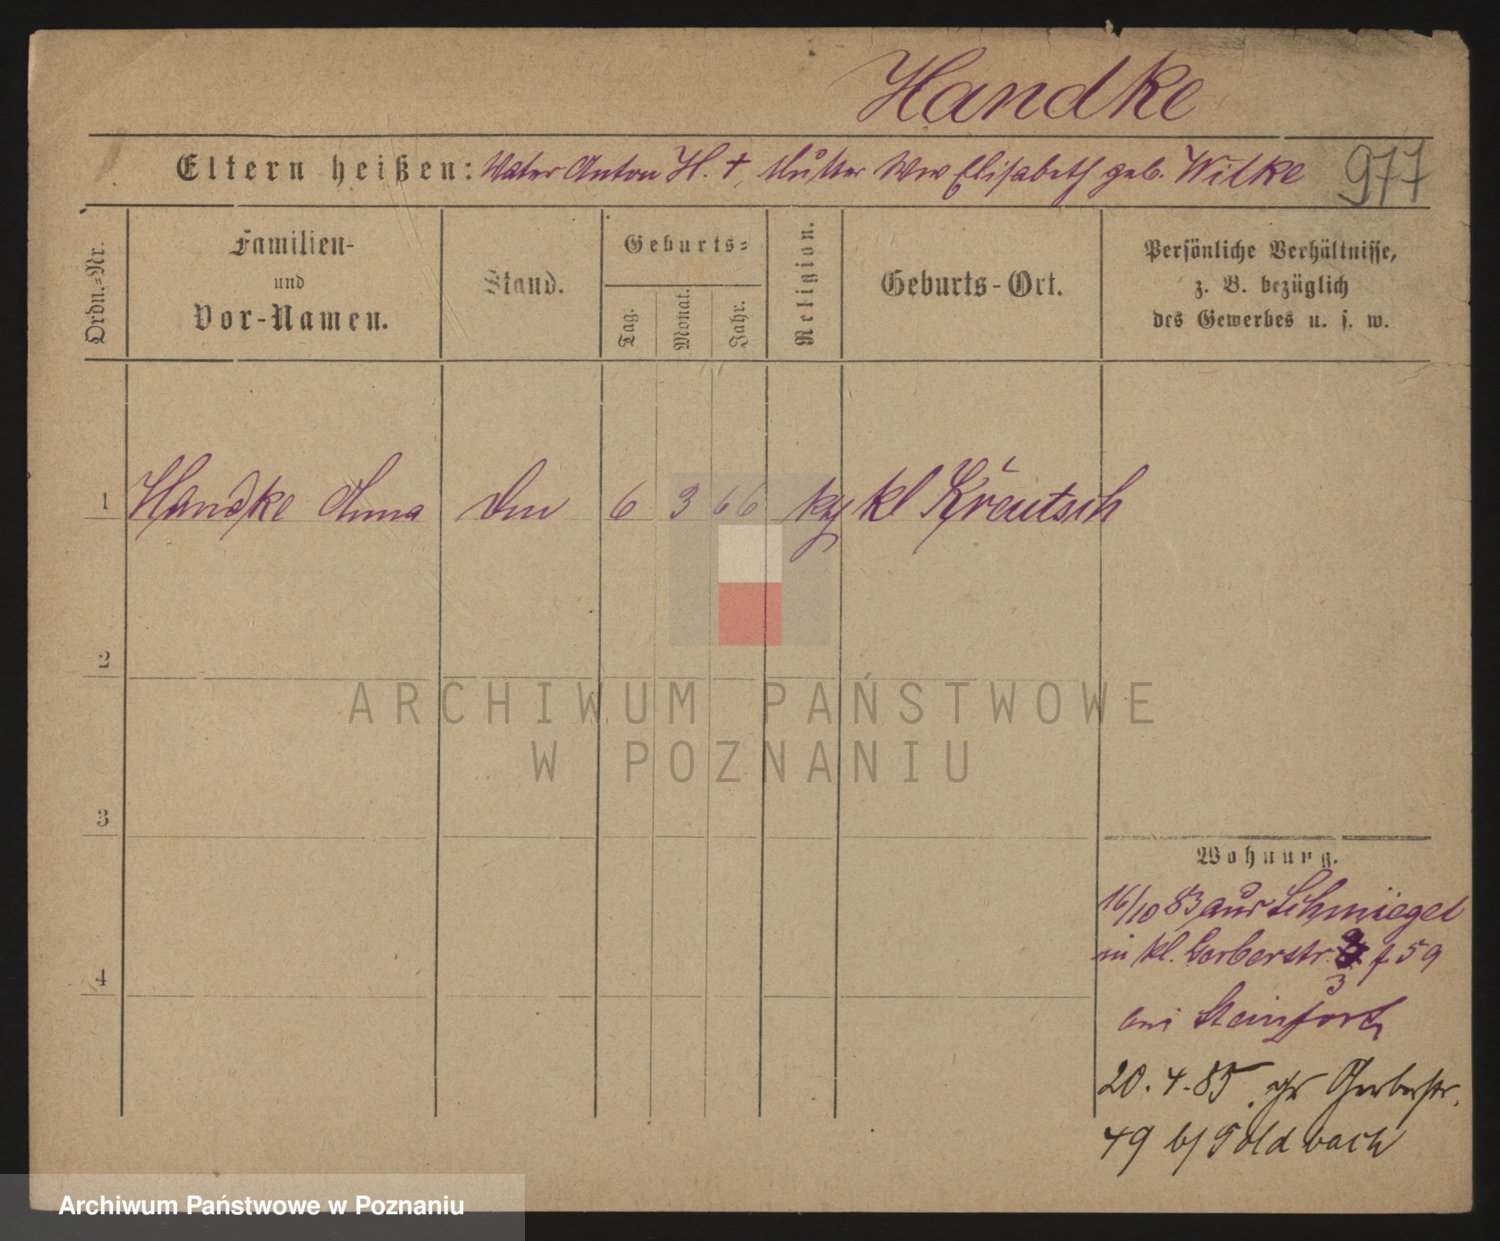 Handke
Eltern heißen: Vater Anton H. †, Mutter Ww Elisabeth geb. Wilke 977
Ordn.=Nr.
Familien-
und
Vor-Namen.
Stand.
Geburts=
Tag.
Monat.
Jahr.
Religion.
Geburts-Ort.
Persönliche Verhältnisse,
z. B. bezüglich
des Gewerbes u. s. w.
1 Handke Anna 6 3 66 kl Kreutsch
2
ARCHIWUM PAŃSTWOWE
W POZNANIU
3
Wohnung.
16/10 83 aus Schmiegel
in kl. Gerberstr. 59
3
4
20. 4. 85. gr Gerberstr.
49 b/ Goldbach
Archiwum Państwowe w Poznaniu